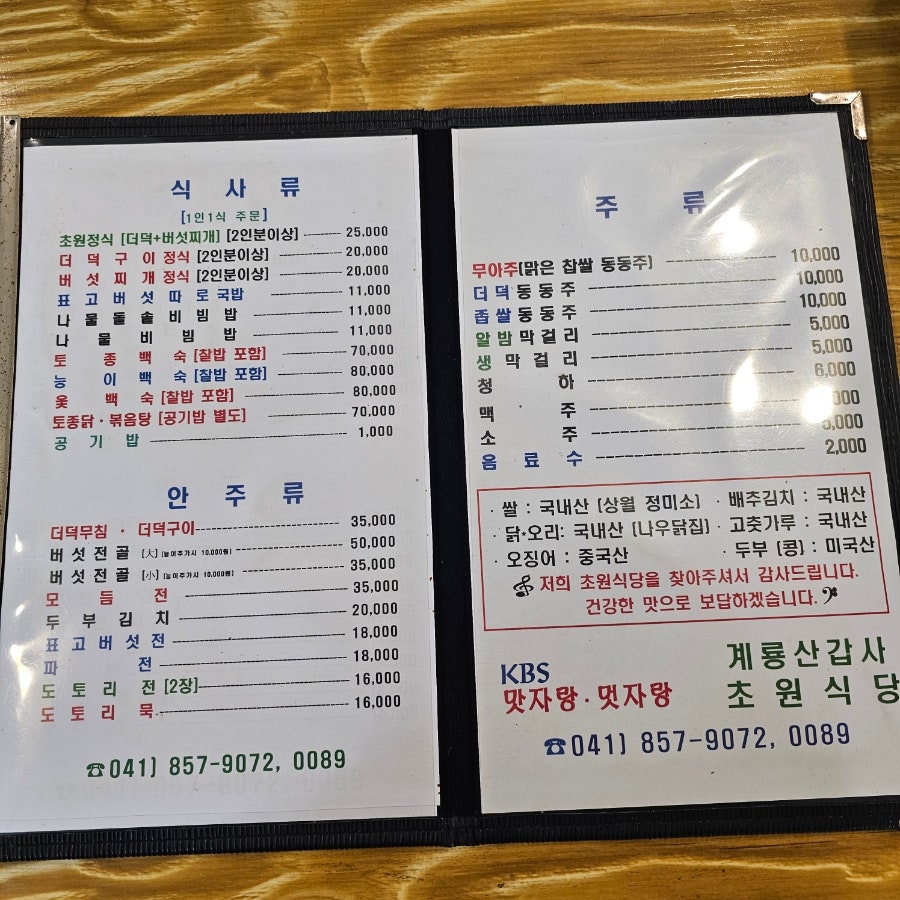 식 사 류
[1인1식 주문]
초원정식 [더덕+버섯찌개] [2인분이상] 25,000
더 덕 구 이 정식 [2인분이상] 20,000
버 섯 찌 개 정식 [2인분이상] 20,000
표 고 버 섯 따 로 국밥 11,000
나 물 돌 솥 비 빔 밥 11,000
나 물 비 빔 밥 11,000
토 종 백 숙 [찰밥 포함] 70,000
능 이 백 숙 [찰밥 포함] 80,000
옻 백 숙 [찰밥 포함] 80,000
토종닭·볶음탕 [공기밥 별도] 70,000
공 기 밥 1,000
안 주 류
더덕무침 · 더덕구이 35,000
버 섯 전 골 [大] [능이추가시 10,000원] 50,000
버 섯 전 골 [小] [능이추가시 10,000원] 35,000
모 듬 전 35,000
두 부 김 치 20,000
표 고 버 섯 전 18,000
파 전 18,000
도 토 리 전 [2장] 16,000
도 토 리 묵 16,000
☎041) 857-9072, 0089
주 류
무아주(맑은 찹쌀 동동주) 10,000
더 덕 동 동 주 10,000
좁 쌀 동 동 주 10,000
알 밤 막 걸 리 5,000
생 막 걸 리 5,000
청 하 6,000
맥 주
소 주 5,000
음 료 수 2,000
· 쌀 : 국내산 [상월 정미소] · 배추김치 : 국내산
· 닭·오리: 국내산 [나우닭집] · 고춧가루 : 국내산
· 오징어 : 중국산 · 두부 [콩] : 미국산
저희 초원식당을 찾아주셔서 감사드립니다.
건강한 맛으로 보답하겠습니다.
KBS
맛자랑·멋자랑
계룡산갑사
초 원 식 당
☎041) 857-9072, 0089